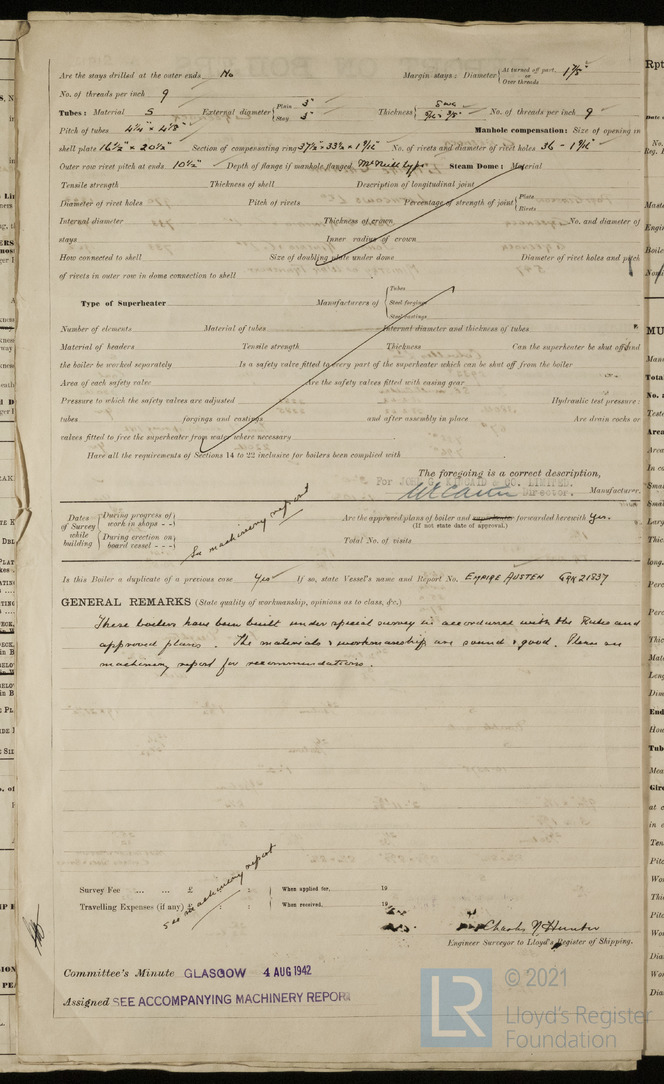 Are the stays drilled at the outer ends No Margin stays: Diameter { At turned off part, or Over threads 1⅞"
No. of threads per inch 9
Tubes: Material S External diameter { Plain 3" Stay 3" Thickness No. of threads per inch 9
Pitch of tubes 4¼" × 4⅛" Manhole compensation: Size of opening in
shell plate 16½" × 20½" Section of compensating ring No. of rivets and diameter of rivet holes 36 -
Outer row rivet pitch at ends 10½" Depth of flange if manhole flanged McNeill type Steam Dome: Material
Tensile strength Thickness of shell Description of longitudinal joint
Diameter of rivet holes Pitch of rivets Percentage of strength of joint { Plate Rivets
Internal diameter Thickness of crown No. and diameter of
stays Inner radius of crown
How connected to shell Size of doubling plate under dome Diameter of rivet holes and pitch
of rivets in outer row in dome connection to shell
Type of Superheater Manufacturers of { Tubes Steel forgings Steel castings
Number of elements Material of tubes Internal diameter and thickness of tubes
Material of headers Tensile strength Thickness Can the superheater be shut off and
the boiler be worked separately Is a safety valve fitted to every part of the superheater which can be shut off from the boiler
Area of each safety valve Are the safety valves fitted with easing gear
Pressure to which the safety valves are adjusted Hydraulic test pressure:
tubes forgings and castings and after assembly in place Are drain cocks or
valves fitted to free the superheater from water where necessary
Have all the requirements of Sections 14 to 22 inclusive for boilers been complied with
The foregoing is a correct description,
For JOHN G. KINCAID & CO. LIMITED.
Director. Manufacturer.
Dates of Survey while building { During progress of work in shops - - During erection on board vessel - - - } See machinery report
Are the approved plans of boiler and superheater forwarded herewith Yes.
(If not state date of approval.)
Total No. of visits
Is this Boiler a duplicate of a previous case Yes If so, state Vessel's name and Report No. EMPIRE AUSTEN Grk 21837
GENERAL REMARKS (State quality of workmanship, opinions as to class, &c.)
These boilers have been built under special survey in accordance with the Rules and
approved plans. The materials & workmanship are sound & good. Please see
machinery report for recommendations.
Survey Fee ... ... £ : : When applied for, 19
Travelling Expenses (if any) £ : : When received, 19
See machinery report
Charles N Hunter
Engineer Surveyor to Lloyd's Register of Shipping.
Committee's Minute GLASGOW 4 AUG 1942
Assigned SEE ACCOMPANYING MACHINERY REPORT
LR © 2021
Lloyd's Register
Foundation